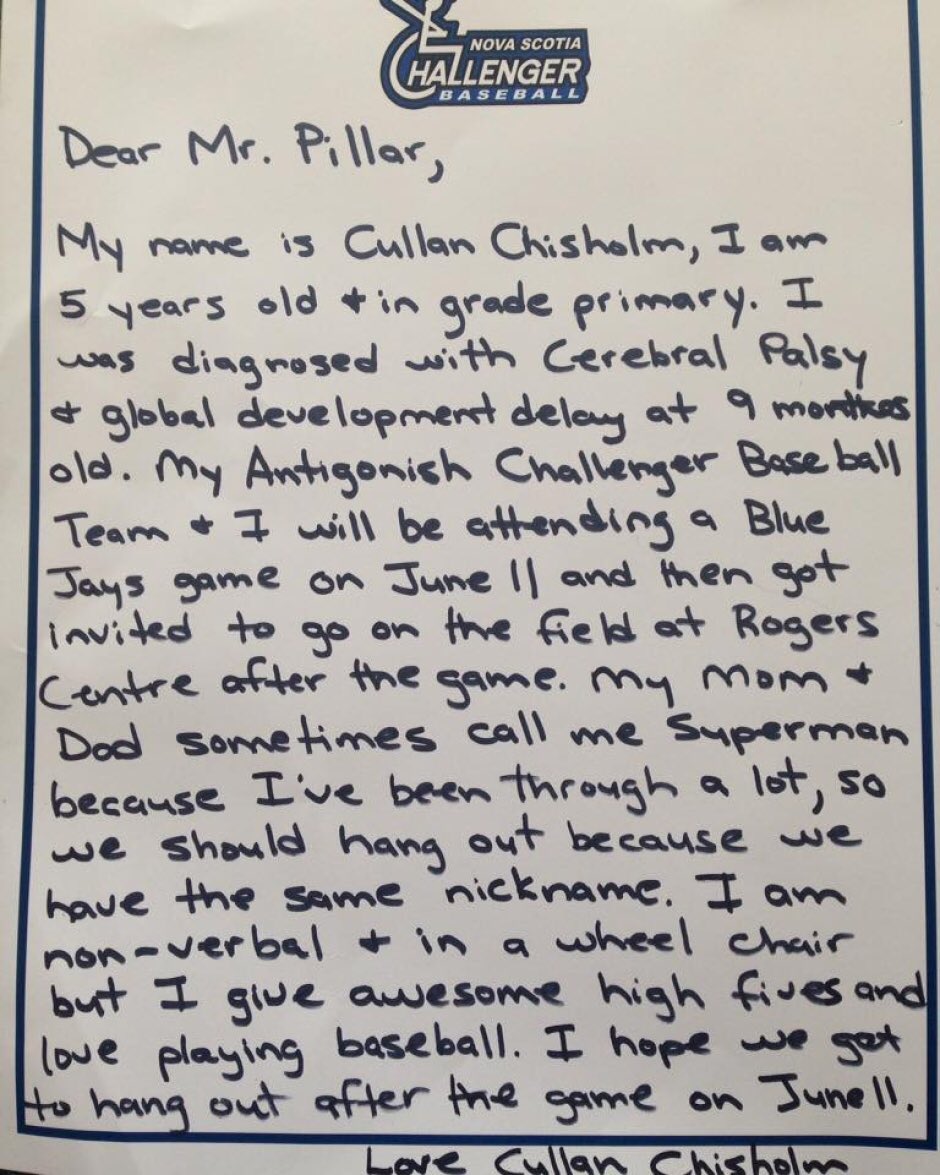 NOVA SCOTIA
CHALLENGER
BASEBALL
Dear Mr. Pillar,
My name is Cullan Chisholm, I am
5 years old + in grade primary. I
was diagnosed with Cerebral Palsy
+ global development delay at 9 months
old. My Antigonish Challenger Baseball
Team + I will be attending a Blue
Jays game on June 11 and then got
invited to go on the field at Rogers
Centre after the game. My Mom +
Dad sometimes call me Superman
because I've been through a lot, so
we should hang out because we
have the same nickname. I am
non-verbal + in a wheel chair
but I give awesome high fives and
love playing baseball. I hope we get
to hang out after the game on June 11.
Love Cullan Chisholm